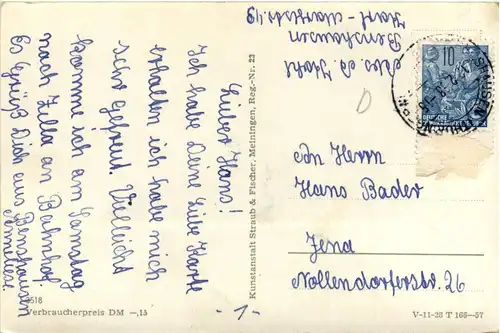 Lieber Hans!
Ich habe Deine liebe Karte
erhalten ich habe mich
sehr gefreut. Vielleicht
komme ich am Samstag
nach Zella an Bahnhof.
Es grüßt Dich aus Benshausen
Anneliese.
Benshausen
Karl - Marxstr. 19
Kunstanstalt Straub & Fischer, Meiningen, Reg.-Nr. 23
10
DEUTSCHE
An Herrn
Hans Bader
Jena
Nollendorferstr. 26
9518
Verbraucherpreis DM –,15
- 1 -
V-11-28 T 166—57